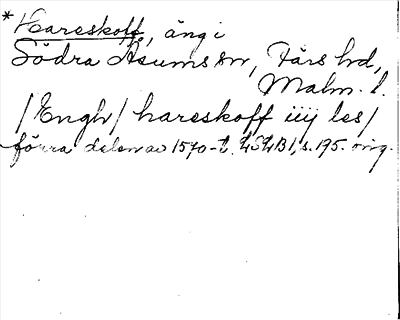 * Hareskoff, äng i
Södra Åsums sn, Färs hd,
Malm. l.
/Engh/ hareskoff iiij les/
förra delen av 1570-t. LSHB 1, s. 195. orig.